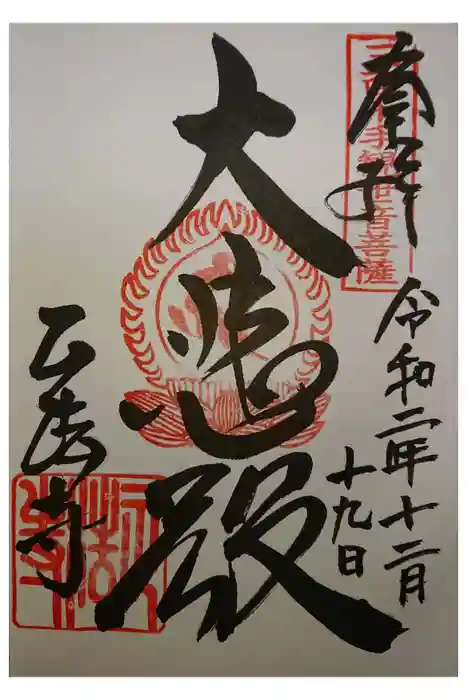 奉拝
三面千手観世音菩薩
令和二年十二月
十九日
大悲殿
正法寺
正法寺